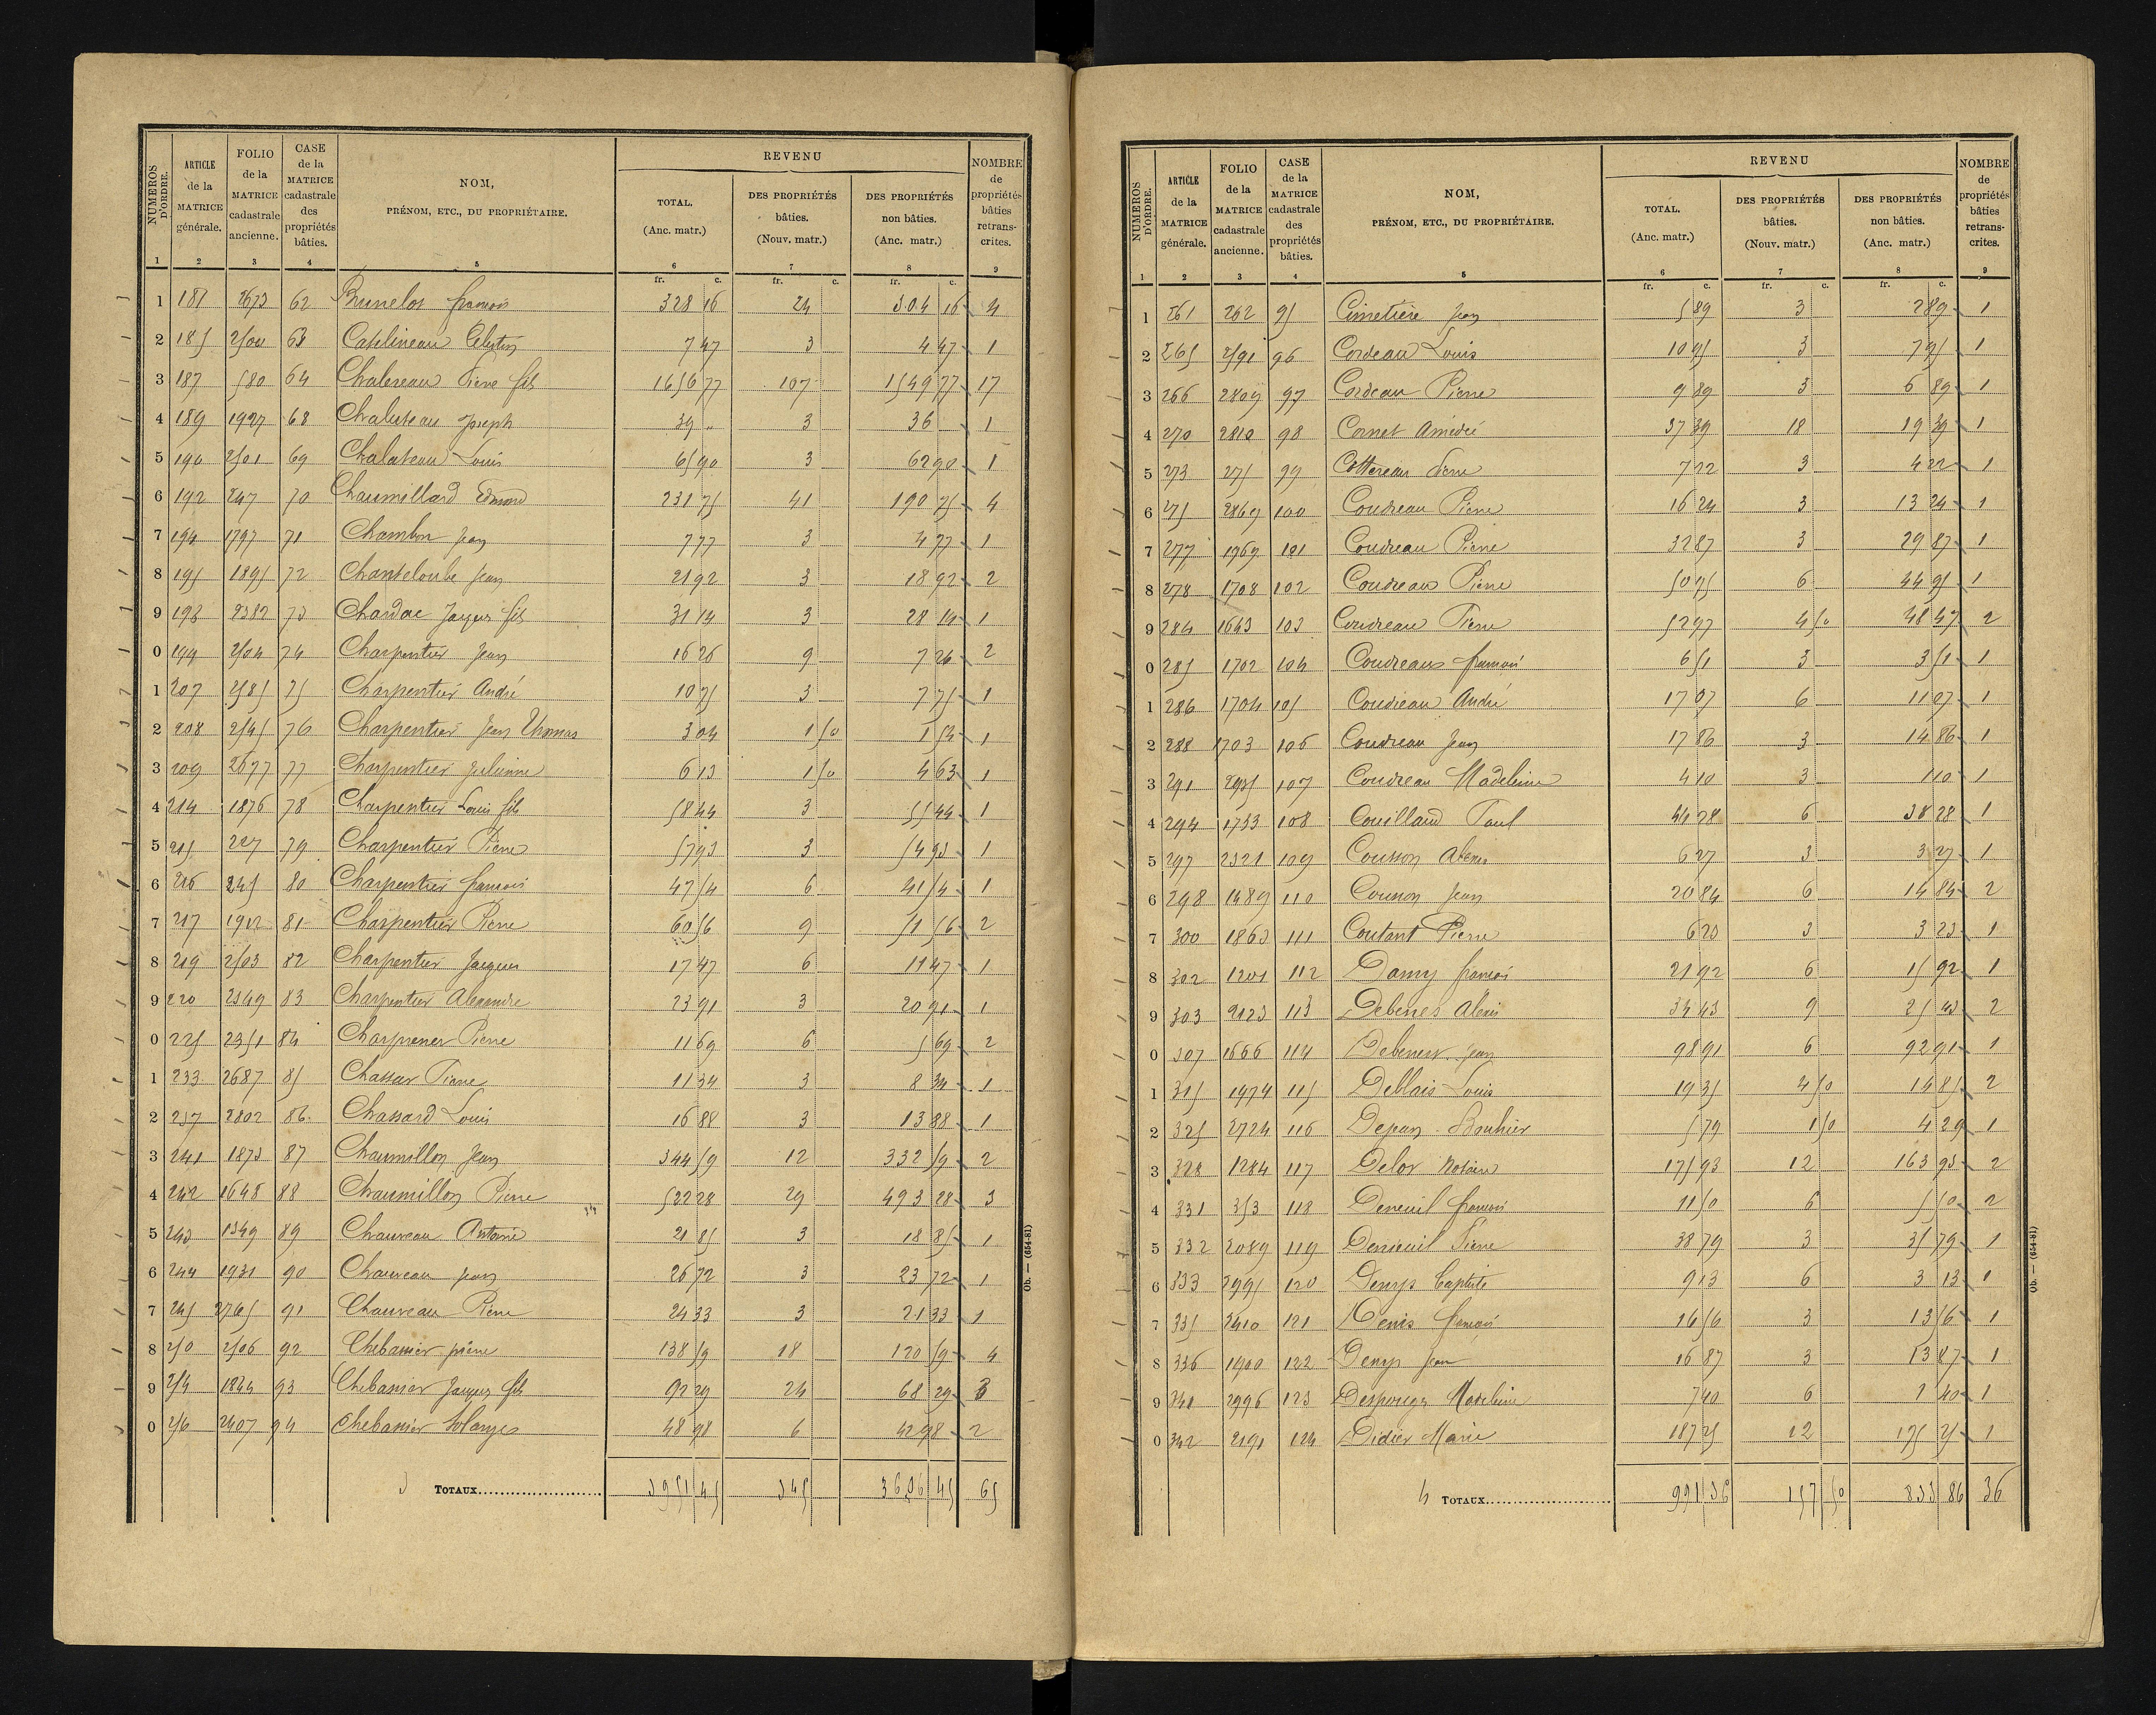 NUMÉROS D'ORDRE. | ARTICLE de la MATRICE générale. | FOLIO de la MATRICE cadastrale ancienne. | CASE de la MATRICE cadastrale des propriétés bâties. | NOM, PRÉNOM, ETC., DU PROPRIÉTAIRE. | REVENU | NOMBRE de propriétés bâties retranscrites.
TOTAL. (Anc. matr.) | DES PROPRIÉTÉS bâties. (Nouv. matr.) | DES PROPRIÉTÉS non bâties. (Anc. matr.)
1 2 3 4 5 6 7 8 9
fr. c. fr. c. fr. c.
1 181 2673 62 Brunelot françois 328 16 24 304 16 4
2 185 2500 63 Catelineau Célestin 7 47 3 4 47 1
3 187 580 64 Pierre fils 1656 77 107 1549 77 17
4 189 1927 68 Joseph 39 " 3 36 1
5 190 2501 69 Louis 65 90 3 62 90 1
6 192 247 70 Chaumillard Edmond 231 75 41 190 75 4
7 194 1797 71 Chambon Jean 7 77 3 4 77 1
8 195 1895 72 Chanteloube Jean 21 92 3 18 92 2
9 198 2382 73 Chardac Jacques fils 31 14 3 28 14 1
0 199 2504 74 Charpentier Jean 16 26 9 7 26 2
1 207 2585 75 Charpentier André 10 75 3 7 75 1
2 208 2545 76 Charpentier Jean Thomas 3 04 1 50 1 54 1
3 209 2677 77 Charpentier Julienne 6 13 1 50 4 63 1
4 214 1876 78 Charpentier Louis fils 58 44 3 55 44 1
5 215 227 79 Charpentier Pierre 57 93 3 54 93 1
6 216 245 80 Charpentier françois 47 54 6 41 54 1
7 217 1902 81 Charpentier Pierre 60 56 9 51 56 2
8 219 2503 82 Charpentier Jacques 17 47 6 11 47 1
9 220 2549 83 Charpentier Alexandre 23 91 3 20 91 1
0 225 2351 84 Pierre 11 69 6 5 69 2
1 233 2687 85 Pierre 11 34 3 8 34 1
2 237 2802 86 Chassard Louis 16 88 3 13 88 1
3 241 1873 87 Chaumillon Jean 344 59 12 332 59 2
4 242 1648 88 Chaumillon Pierre 522 28 29 493 28 3
5 243 1349 89 Chauveau Antoine 21 85 3 18 85 1
6 244 1931 90 Chauveau Jean 26 72 3 23 72 1
7 245 2765 91 Chauveau Pierre 24 33 3 21 33 1
8 250 2506 92 Chebassier 138 59 18 120 59 4
9 254 1844 93 Chebassier Jacques fils 92 29 24 68 29 3
0 256 2407 94 Chebassier Solanges 48 98 6 42 98 2
3 TOTAUX 3951 45 345 3606 45 65
Ob. — (654-81)
NUMÉROS D'ORDRE. | ARTICLE de la MATRICE générale. | FOLIO de la MATRICE cadastrale ancienne. | CASE de la MATRICE cadastrale des propriétés bâties. | NOM, PRÉNOM, ETC., DU PROPRIÉTAIRE. | REVENU | NOMBRE de propriétés bâties retranscrites.
TOTAL. (Anc. matr.) | DES PROPRIÉTÉS bâties. (Nouv. matr.) | DES PROPRIÉTÉS non bâties. (Anc. matr.)
1 2 3 4 5 6 7 8 9
fr. c. fr. c. fr. c.
1 261 262 95 Cimetière Jean 5 89 3 2 89 1
2 265 2591 96 Cordeau Louis 10 95 3 7 95 1
3 266 2809 97 Cordeau Pierre 9 89 3 6 89 1
4 270 2810 98 Cornet Amédée 37 39 18 19 39 1
5 273 275 99 Cottereau Pierre 7 22 3 4 22 1
6 275 2869 100 Coudreau Pierre 16 24 3 13 24 1
7 277 1969 101 Coudreau Pierre 32 87 3 29 87 1
8 278 1708 102 Coudreau Pierre 50 95 6 44 95 1
9 284 1643 103 Coudreau Pierre 52 97 4 50 48 47 2
0 285 1702 104 Coudreaux françois 6 51 3 3 51 1
1 286 1704 105 Coudreau André 17 07 6 11 07 1
2 288 1703 106 Coudreau Jean 17 86 3 14 86 1
3 291 107 Coudreau Madeleine 4 10 3 1 10 1
4 294 1733 108 Couillaud Paul 44 28 6 38 28 1
5 297 2321 109 Cousson Alexis 6 27 3 3 27 1
6 298 1489 110 Cousson Jean 20 84 6 14 84 2
7 300 1863 111 Coutant Pierre 6 23 3 3 23 1
8 302 1201 112 Damy françois 21 92 6 15 92 1
9 303 2123 113 Debenes Alexis 34 43 9 25 43 2
0 307 1666 114 Debenest Jean 98 91 6 92 91 1
1 315 1974 115 Deblais Louis 19 35 4 50 14 85 2
2 325 2724 116 Dejean Bouhier 5 79 1 50 4 29 1
3 328 1284 117 Delor Notaire 175 93 12 163 93 2
4 331 353 118 Deneuil françois 11 50 6 5 50 2
5 332 2089 119 Pierre 38 79 3 35 79 1
6 333 2995 120 Denys Baptiste 9 13 6 3 13 1
7 335 2410 121 Denis françois 16 56 3 13 56 1
8 336 1900 122 Denys Jean 16 87 3 13 87 1
9 340 2996 123 Madeleine 7 40 6 1 40 1
0 342 2191 124 Didier Marie 187 25 12 175 25 1
4 TOTAUX 991 36 157 50 833 86 36
Ob. — (654-81)